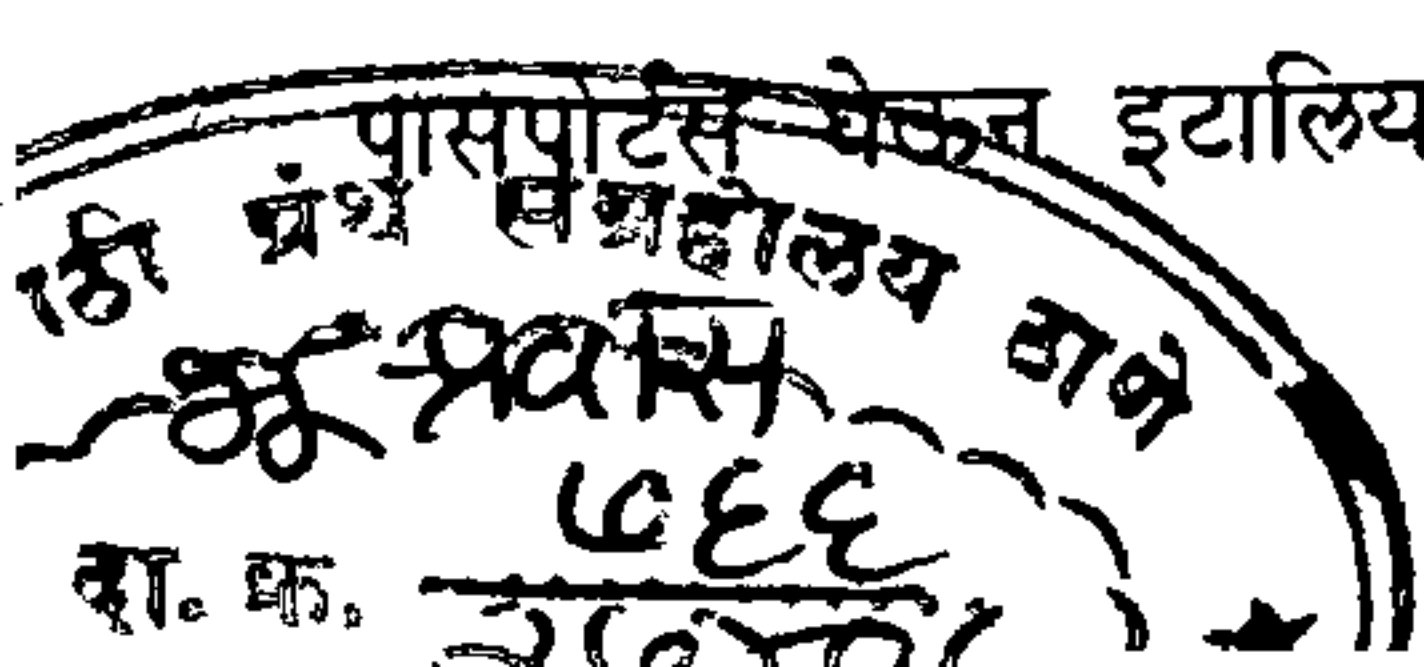 पासपोर्टस घेऊन इटालिय
ाठी ग्रंथ संग्रहालय ठाणे
प्रवास
७६६
दा. क्र.